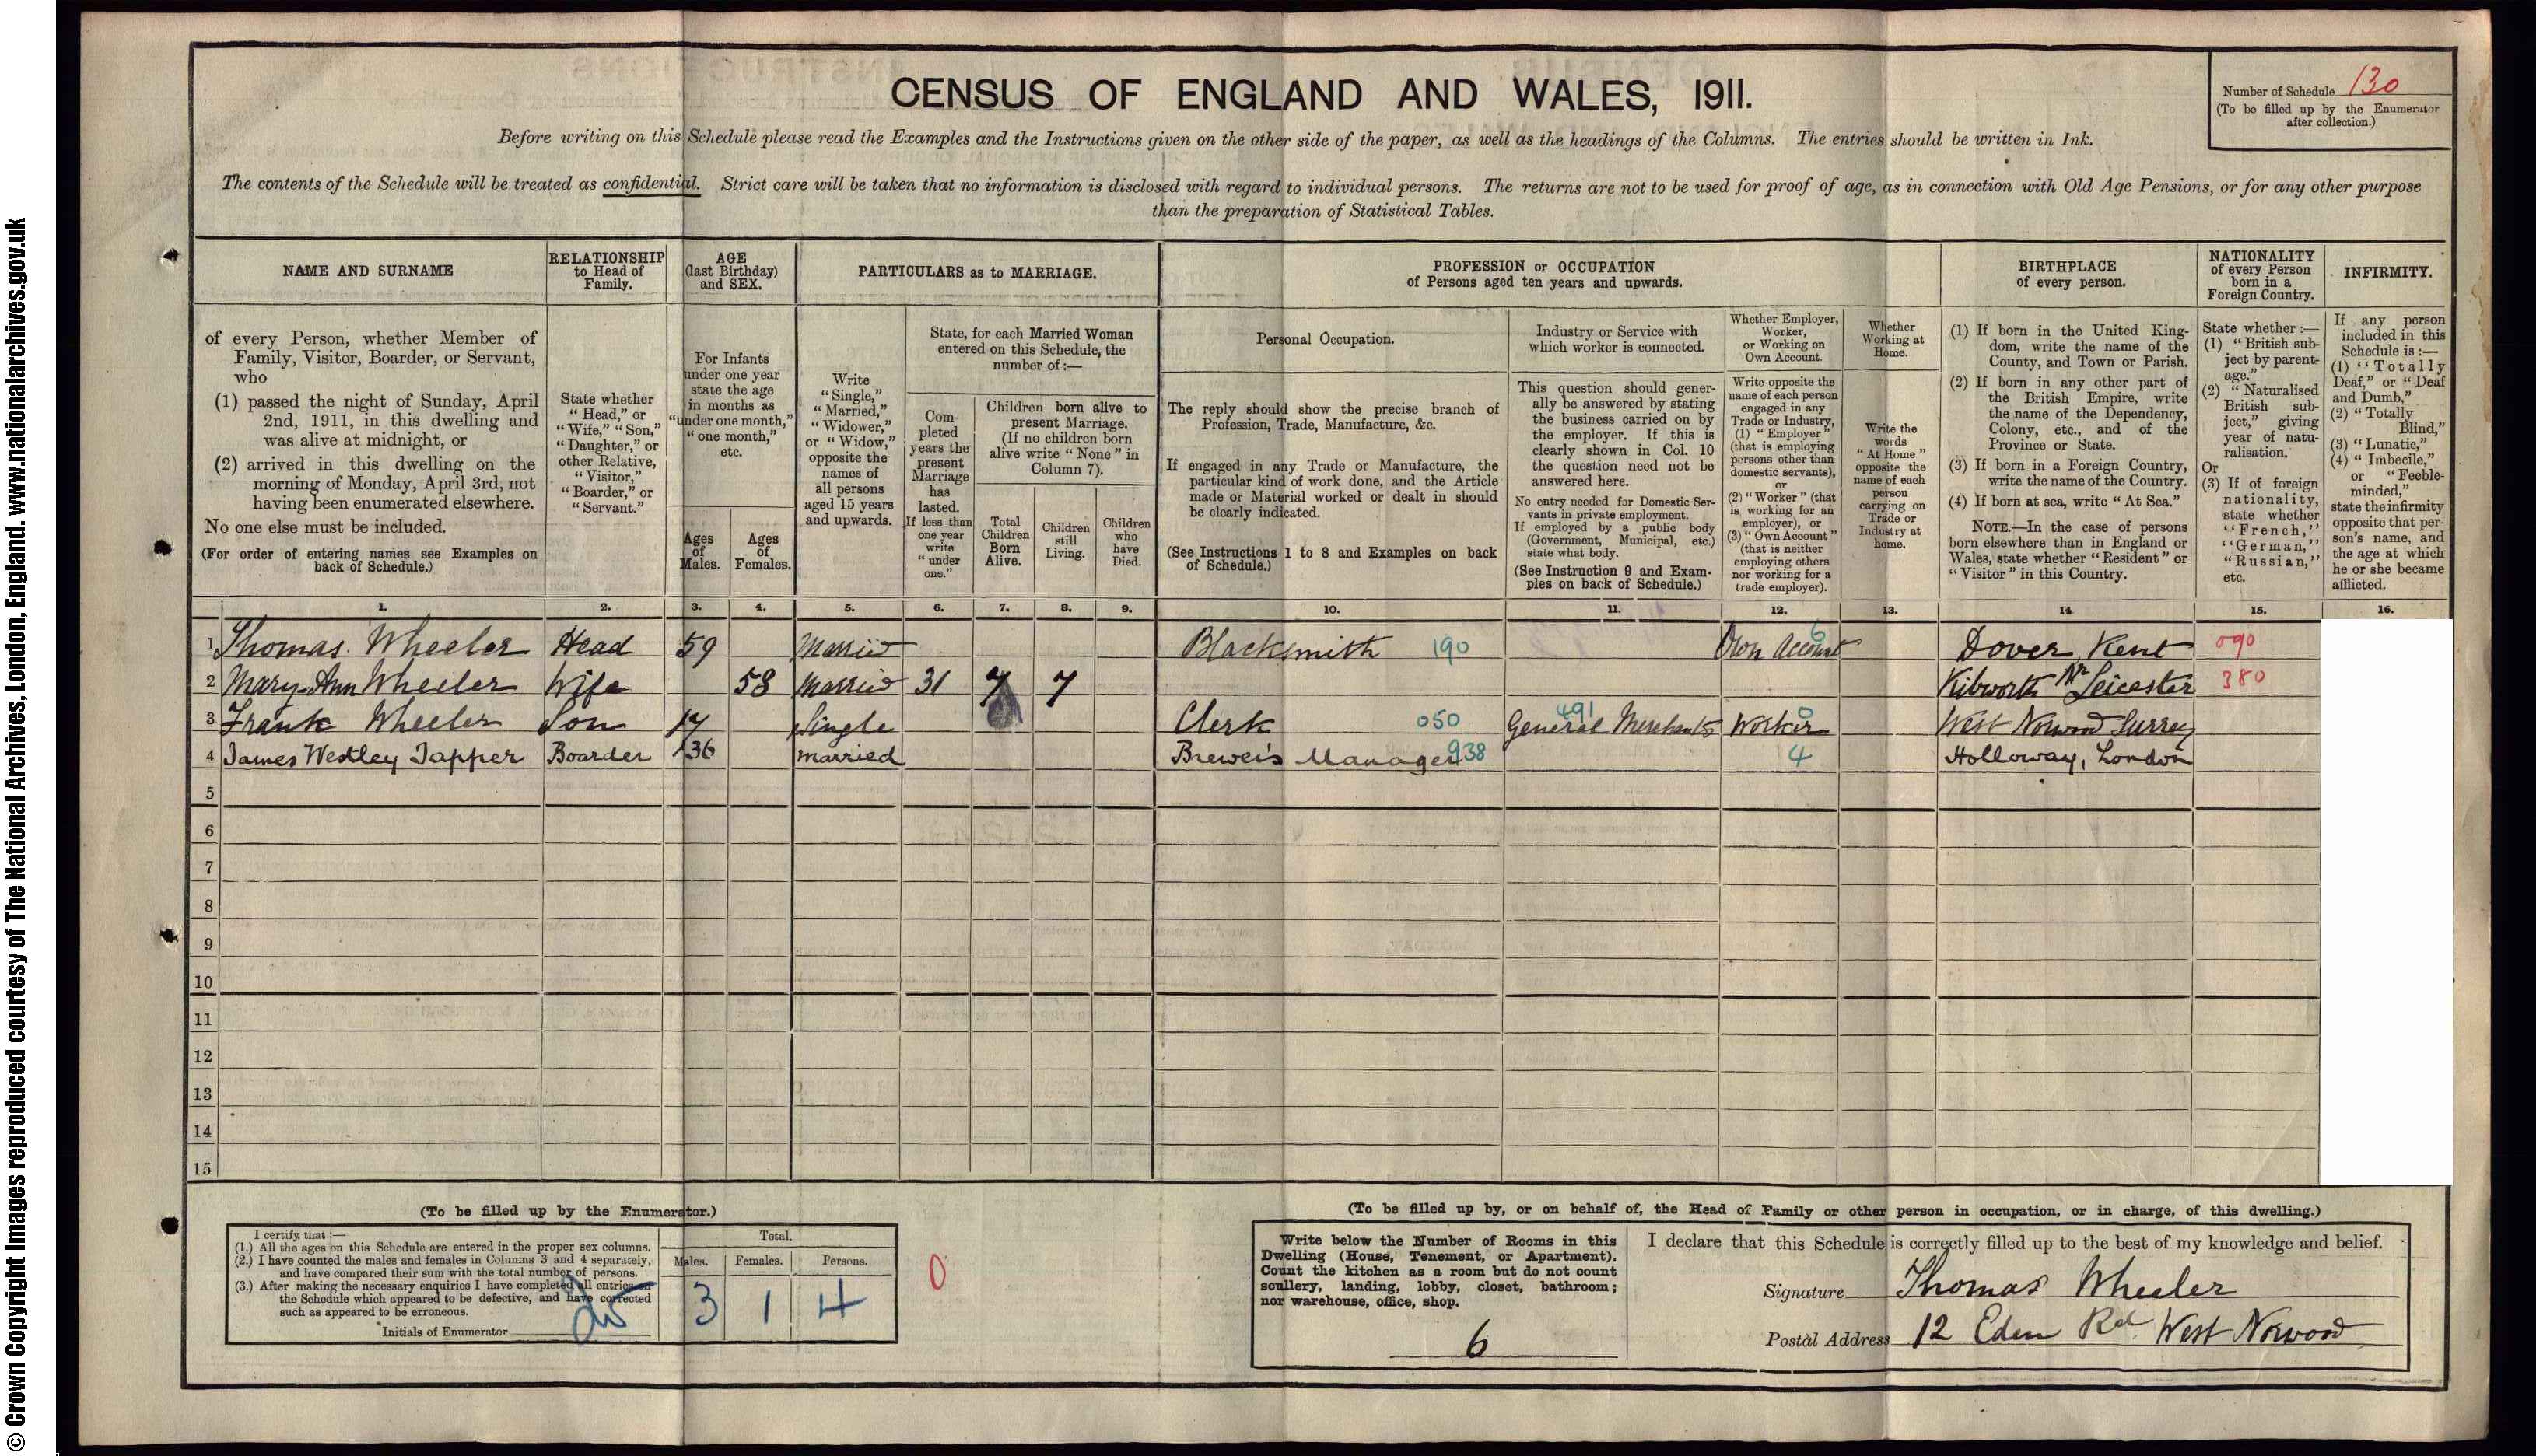 © Crown Copyright Images reproduced courtesy of The National Archives, London, England. www.nationalarchives.gov.uk
CENSUS OF ENGLAND AND WALES, 1911.
Number of Schedule 130
(To be filled up by the Enumerator
after collection.)
Before writing on this Schedule please read the Examples and the Instructions given on the other side of the paper, as well as the headings of the Columns. The entries should be written in Ink.
The contents of the Schedule will be treated as confidential. Strict care will be taken that no information is disclosed with regard to individual persons. The returns are not to be used for proof of age, as in connection with Old Age Pensions, or for any other purpose
than the preparation of Statistical Tables.
NAME AND SURNAME
of every Person, whether Member of
Family, Visitor, Boarder, or Servant,
who
(1) passed the night of Sunday, April
2nd, 1911, in this dwelling and
was alive at midnight, or
(2) arrived in this dwelling on the
morning of Monday, April 3rd, not
having been enumerated elsewhere.
No one else must be included.
(For order of entering names see Examples on
back of Schedule.)
RELATIONSHIP
to Head of
Family.
State whether
"Head," or
"Wife," "Son,"
"Daughter," or
other Relative,
"Visitor,"
"Boarder," or
"Servant."
AGE
(last Birthday)
and SEX.
For Infants
under one year
state the age
in months as
"under one month,"
"one month,"
etc.
Ages
of
Males.
Ages
of
Females.
PARTICULARS as to MARRIAGE.
Write
"Single,"
"Married,"
"Widower,"
or "Widow,"
opposite the
names of
all persons
aged 15 years
and upwards.
State, for each Married Woman
entered on this Schedule, the
number of:—
Com-
pleted
years the
present
Marriage
has
lasted.
If less than
one year
write
"under
one."
Children born alive to
present Marriage.
(If no children born
alive write "None" in
Column 7).
Total
Children
Born
Alive.
Children
still
Living.
Children
who
have
Died.
PROFESSION or OCCUPATION
of Persons aged ten years and upwards.
Personal Occupation.
The reply should show the precise branch of
Profession, Trade, Manufacture, &c.
If engaged in any Trade or Manufacture, the
particular kind of work done, and the Article
made or Material worked or dealt in should
be clearly indicated.
(See Instructions 1 to 8 and Examples on back
of Schedule.)
Industry or Service with
which worker is connected.
This question should gener-
ally be answered by stating
the business carried on by
the employer. If this is
clearly shown in Col. 10
the question need not be
answered here.
No entry needed for Domestic Ser-
vants in private employment.
If employed by a public body
(Government, Municipal, etc.)
state what body.
(See Instruction 9 and Exam-
ples on back of Schedule.)
Whether Employer,
Worker,
or Working on
Own Account.
Write opposite the
name of each person
engaged in any
Trade or Industry,
(1) "Employer"
(that is employing
persons other than
domestic servants),
or
(2) "Worker" (that
is working for an
employer), or
(3) "Own Account"
(that is neither
employing others
nor working for a
trade employer).
Whether
Working at
Home.
Write the
words
"At Home"
opposite the
name of each
person
carrying on
Trade or
Industry at
home.
BIRTHPLACE
of every person.
(1) If born in the United King-
dom, write the name of the
County, and Town or Parish.
(2) If born in any other part of
the British Empire, write
the name of the Dependency,
Colony, etc., and of the
Province or State.
(3) If born in a Foreign Country,
write the name of the Country.
(4) If born at sea, write "At Sea."
NOTE.—In the case of persons
born elsewhere than in England or
Wales, state whether "Resident" or
"Visitor" in this Country.
NATIONALITY
of every Person
born in a
Foreign Country.
State whether :—
(1) "British sub-
ject by parent-
age."
(2) "Naturalised
British sub-
ject," giving
year of natu-
ralisation.
Or
(3) If of foreign
nationality,
state whether
"French,"
"German,"
"Russian,"
etc.
INFIRMITY.
If any person
included in this
Schedule is:—
(1) "Totally
Deaf," or "Deaf
and Dumb,"
(2) "Totally
Blind,"
(3) "Lunatic,"
(4) "Imbecile,"
or "Feeble-
minded,"
state the infirmity
opposite that per-
son's name, and
the age at which
he or she became
afflicted.
1. 2. 3. 4. 5. 6. 7. 8. 9. 10. 11. 12. 13. 14 15. 16.
1 Thomas Wheeler Head 59 Married Blacksmith 190 Own Account 6 Dover Kent 090
2 Mary Ann Wheeler Wife 58 Married 31 7 7 Kibworth Nr Leicester 380
3 Frank Wheeler Son 17 Single Clerk 050 General Merchants 491 Worker 0 West Norwood Surrey
4 James Westley Tapper Boarder 36 Married Brewer's Manager 938 4 Holloway, London
5
6
7
8
9
10
11
12
13
14
15
(To be filled up by the Enumerator.)
I certify that :—
(1.) All the ages on this Schedule are entered in the proper sex columns.
(2.) I have counted the males and females in Columns 3 and 4 separately,
and have compared their sum with the total number of persons.
(3.) After making the necessary enquiries I have completed all entries on
the Schedule which appeared to be defective, and have corrected
such as appeared to be erroneous.
Initials of Enumerator
Total.
Males. Females. Persons.
3 1 4
0
(To be filled up by, or on behalf of, the Head of Family or other person in occupation, or in charge, of this dwelling.)
Write below the Number of Rooms in this
Dwelling (House, Tenement, or Apartment).
Count the kitchen as a room but do not count
scullery, landing, lobby, closet, bathroom;
nor warehouse, office, shop.
6
I declare that this Schedule is correctly filled up to the best of my knowledge and belief.
Signature Thomas Wheeler
Postal Address 12 Eden Rd West Norwood